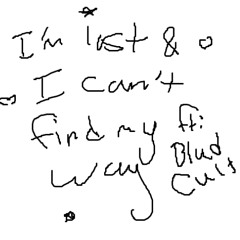 I'm lost &
I can't
find my ft:
way Blud
Cult